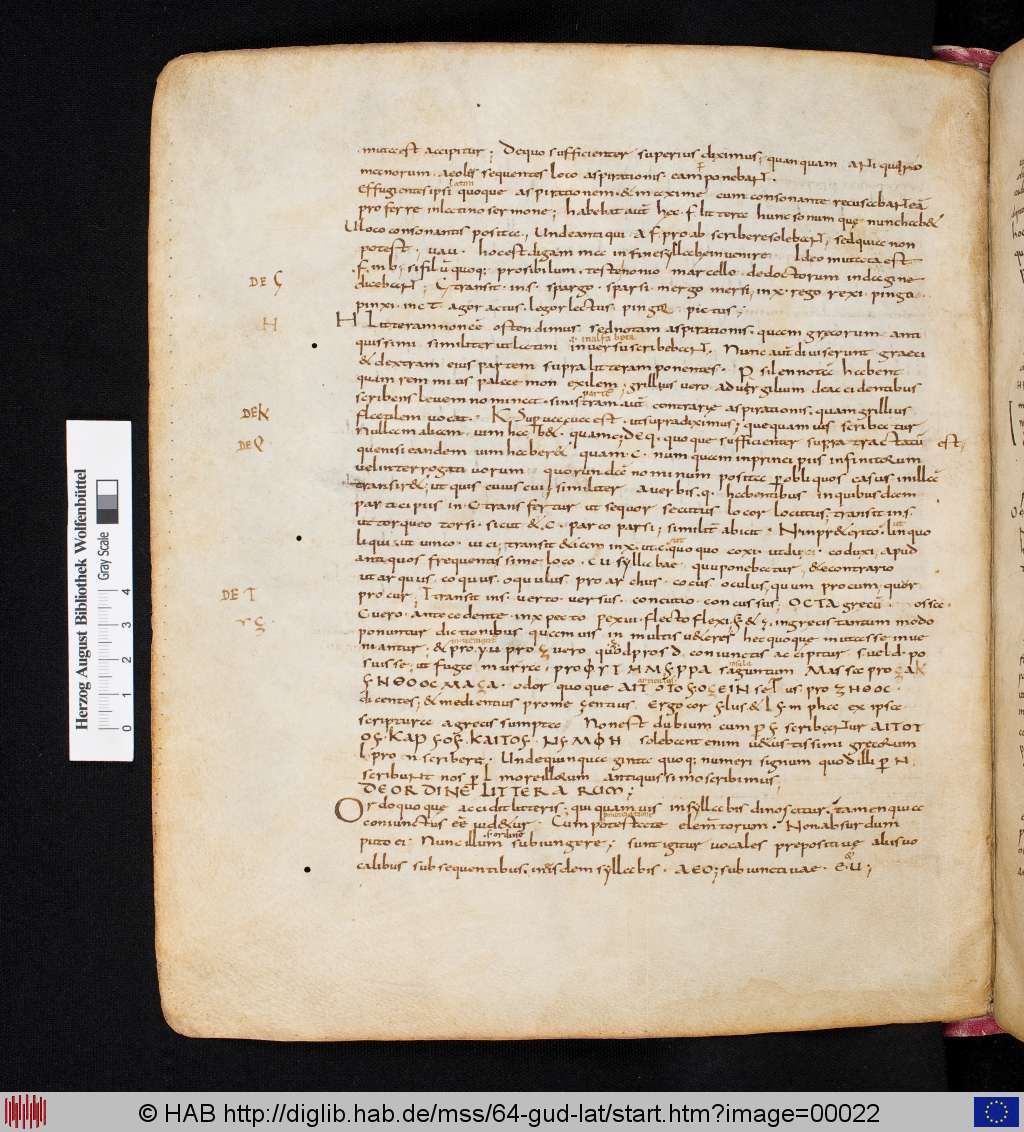 mutae est accipitur; De quo sufficienter superius diximus; quamquam antiqui ro
manorum aeoles sequentes loco aspirationis eam ponebant.
effugientes ipsi quoque aspirationem. & maxime cum consonante recusabant eā
proferre in latino sermone; habebat aut hæc .f. littera hunc sonum que nunc hab&
U loco consonantis posita. Unde antiqui AF pro ab scribere solebant, sed quia non
potest . uau . hoc est digamma in fine syllabae inuenire . Ideo mutata est
.f. in b; sifilū quoq; pro sibilum . teste nonio marcello de doctorum indagine
dicebant; C transit in s. spargo . sparsi . mergo mersi, in x. rego rexi. pingo.
pinxi. in c T. ago actus. lego lectus pingo pictus;
DE G
H
H Litteram non eē ostendimus sed notam aspirationis. quam grecorum anti
quissimi similiter ut latini in uersu scribebant. Nunc aut diuiserunt graeci
& dextram eius partem supra litteram ponentes. psilen notā habent
quam remmius palaemon exilem; grillius uero ad uergilium de accidentibus
scribens leuem nominat. sinistram aut contrarie aspirationis. quam grillius
flatilem uocat. K superuacua est. ut supra diximus; quae quamuis scribatur
DE K
nullam aliam uim hab& quam c; de q. quoque sufficienter supra tractatū est;
DE Q
quae nisi eandem uim haber& quam .c. numquam in principiis infinitorum
uel interrogatiuorum quorundā nominum posita p obliquos casus in illā
transir&; ut quis cuius cui; similiter a uerbis .q. habentibus in quibusdam
participiis in C transfertur ut sequor secutus loquor locutus; transit in s.
ut torqueo torsi. sicut & .c. parco parsi; similiter abicit . N in pr&erito. linquo
liqui. ut uinco . uici; transit etiam in x. ut coquo coxi
antiquos frequentissime loco . cu syllabae quu ponebatur, & e contrario
ut arquus, coquus, oquulus pro arcus . cocus oculus, quum pro cum, quor
pro cur; T transit in s. uerto uersus . concutio concussus, OCTA grecū ossa
DE T
C uero antecedente in x pecto pexui. flecto flexi, in grecis tantum modo
ponuntur dictionibus quamuis in multis u&eres hac quoque mutasse inue
niantur, & pro .y. u pro z uero, quod pro s d coniunctis accipitur s uel d po
suisse, ut fuga murra, pro ΦΥΓΗ ΜΥΡΡΑ saguntum Massa pro
ΖΑΚΥΝΘΟΟϹ ΜΑΖΑ. odor quoque
dicentes, & medientius pro mezentius. Ergo corylus & lympha ex ipsa
scriptura a grecis sumpta Non est dubium cum p y scribatur
solebant enim u&ustissimi grecorum
l pro n scribere. Unde quinquaginta quoq; numeri signum quod illi p N
scribunt nos p L more illorum antiquissimo scribimus.
DE ORDINE LITTERARUM;
Ordo quoque accidit litteris. qui quamuis in syllabis dinoscitur, tamen quia
coniunctus eē uid&ur. Cum potestate elementorum. Non absurdum
puto ei nunc illum subiungere; sunt igitur uocales prepositiuae aliis uo
calibus subsequentibus. in isdem syllabis . A E O; subiunctiuae . E. U;
Herzog August Bibliothek Wolfenbüttel
Gray Scale
0 1 2 3 4
© HAB http://diglib.hab.de/mss/64-gud-lat/start.htm?image=00022